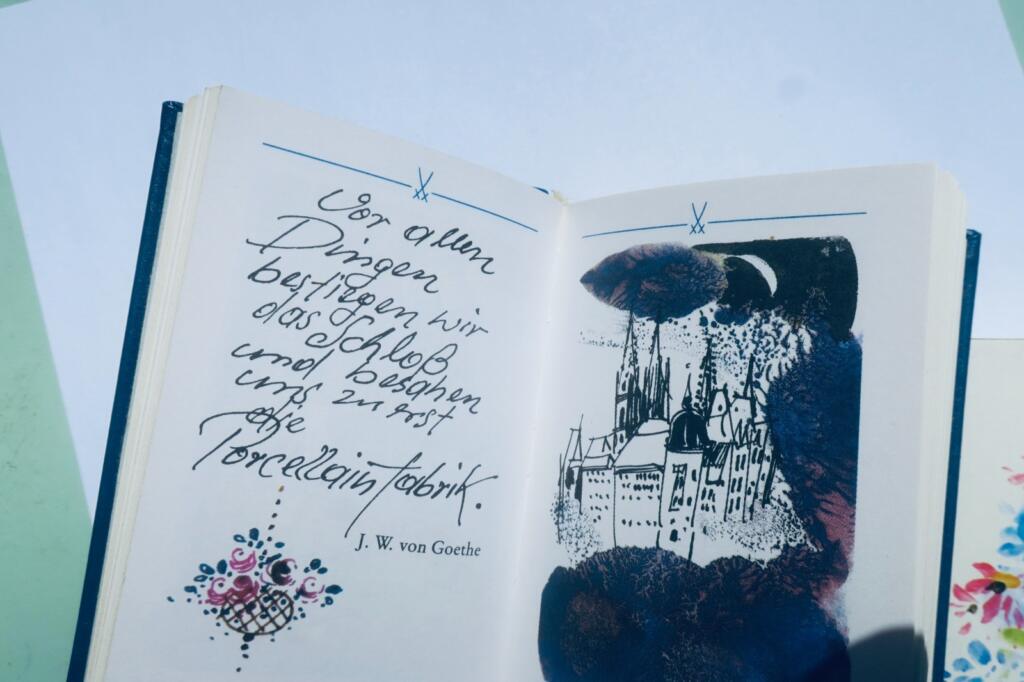 Vor allen
Dingen
bestiegen wir
das Schloß
und besahen
uns zu erst
die
Porcellain fabrik.
J. W. von Goethe